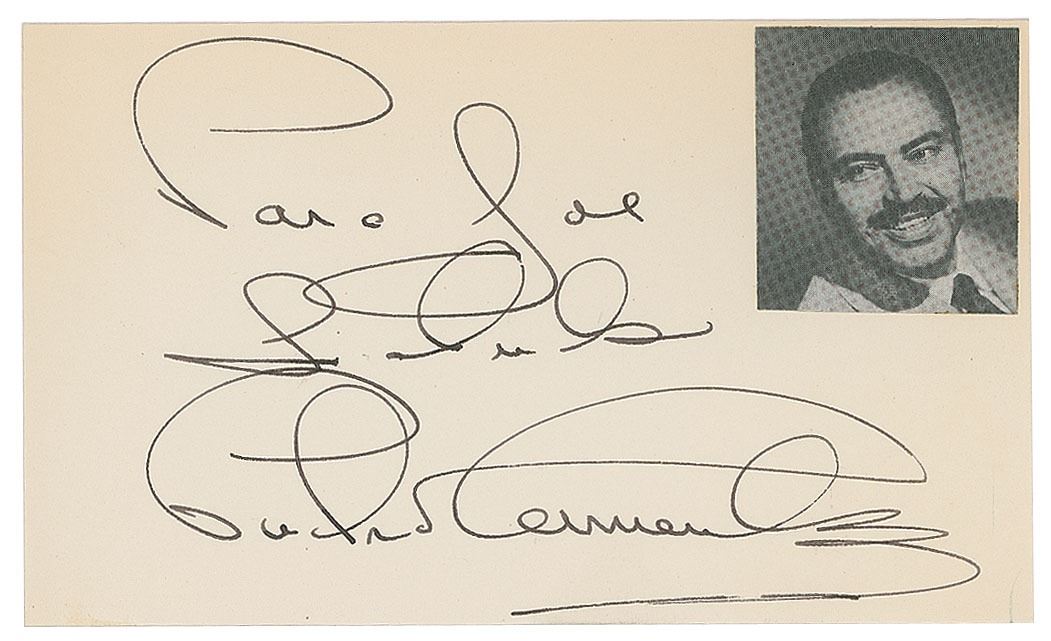 Para Joe
Pedro Armendariz